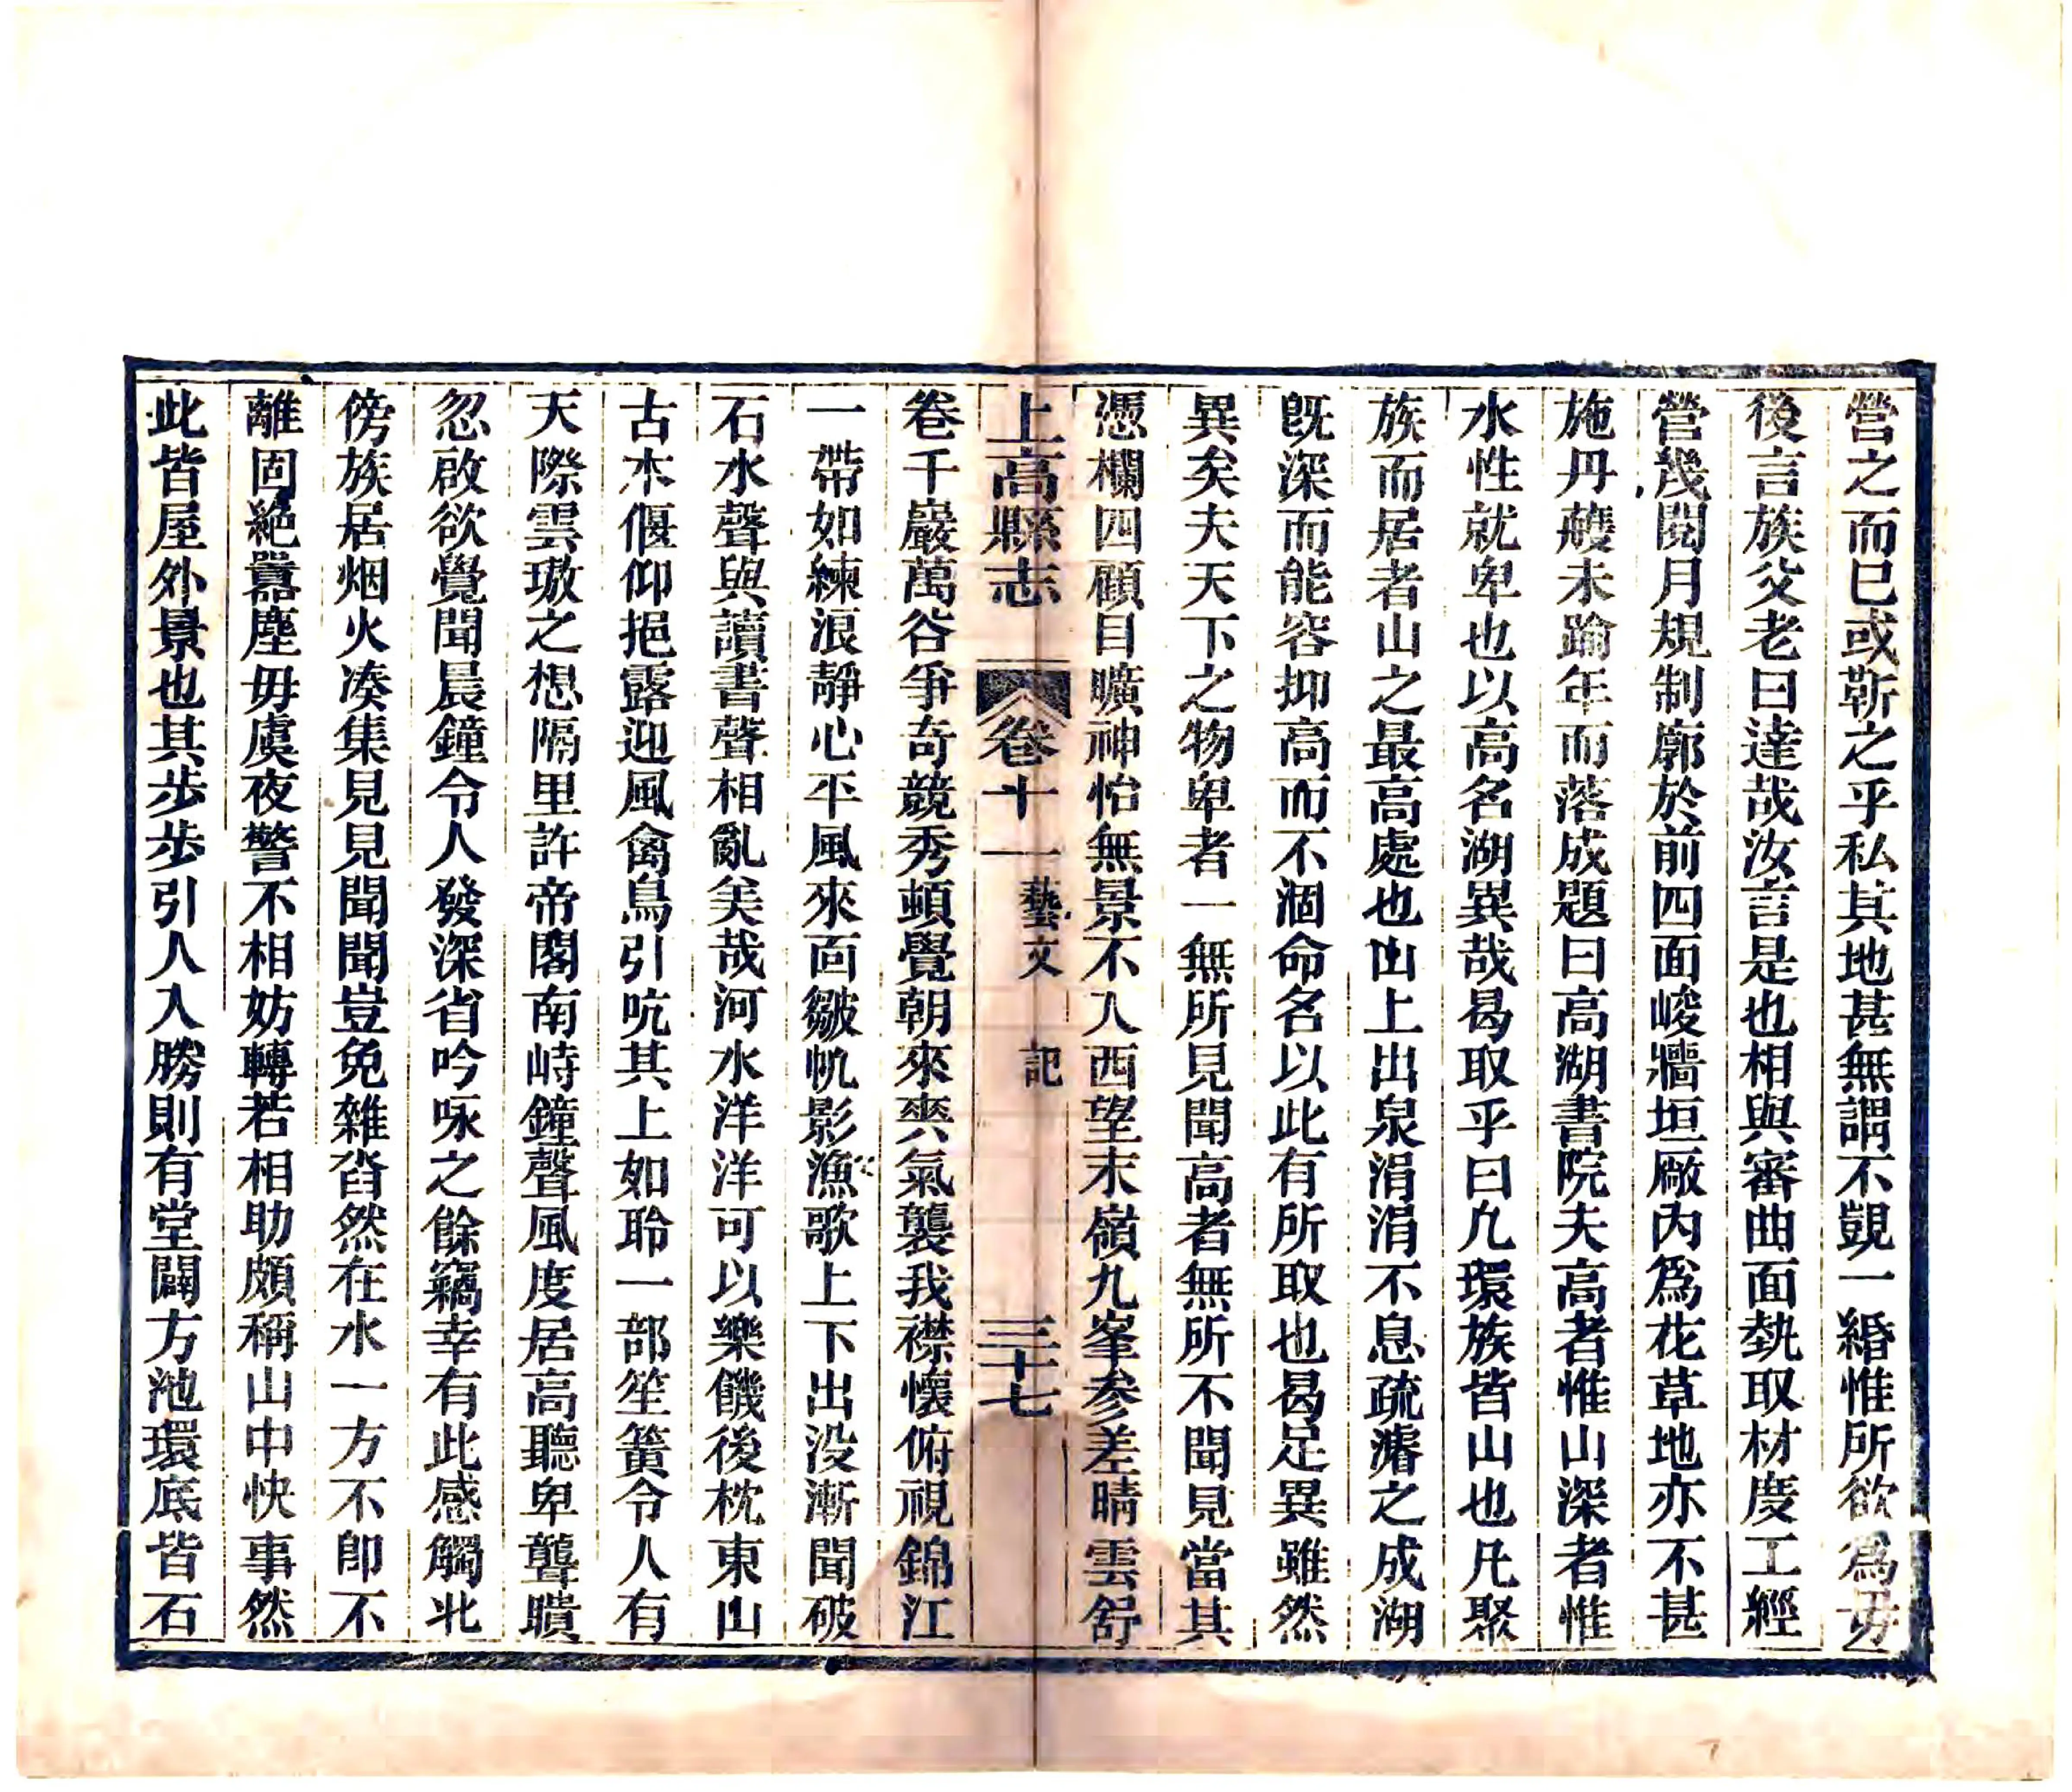 營之而已或靳之乎私其地甚無謂不覬一緡惟所欲爲毋
後言族父老曰達哉汝言是也相與審曲面埶取材度工經
營幾閱月規制廓於前四面峻牆垣厰內爲花草地亦不甚
施丹雘未踰年而落成題曰高湖書院夫高者惟山深者惟
水性就卑也以高名湖異哉曷取乎曰凢環族皆山也凡聚
族而居者山之最高處也山上出泉涓涓不息疏濬之成湖
旣深而能容抑高而不涸命名以此有所取也曷足異雖然
異矣夫天下之物卑者一無所見聞高者無所不聞見當其
憑欄四顧目曠神怡無景不入西望末嶺九峯參差晴雲舒
上高縣志 卷十一 藝文 記 三十七
卷千巖萬谷爭奇競秀頓覺朝來爽氣襲我襟懷俯視錦江
一帶如練浪靜心平風來面皺帆影漁歌上下出没漸聞破
石水聲與讀書聲相亂美哉河水洋洋可以樂饑後枕東山
古木偃仰挹露迎風禽鳥引吭其上如聆一部笙簧令人有
天際雲璈之想隔里許帝閣南峙鐘聲風度居高聽卑聾聵
忽啟欲覺聞晨鐘令人發深省吟咏之餘竊幸有此感觸北
傍族居烟火凑集見見聞聞豈免雜沓然在水一方不卽不
離固絕囂塵毋虞夜警不相妨轉若相助頗稱山中快事然
此皆屋外景也其步步引人入勝則有堂闢方池環底皆石